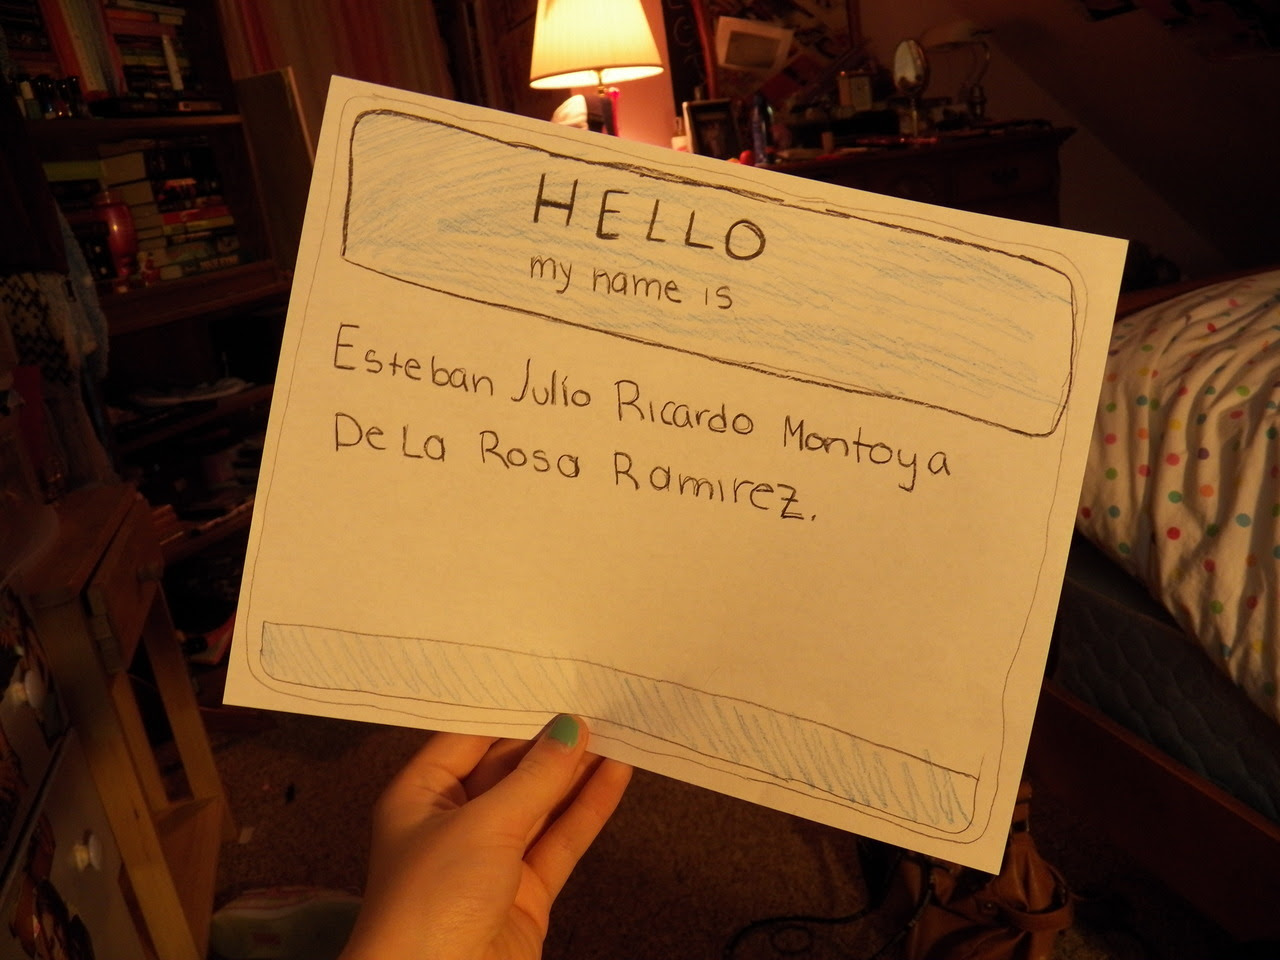 HELLO
my name is
Esteban Julio Ricardo Montoya
De La Rosa Ramirez.